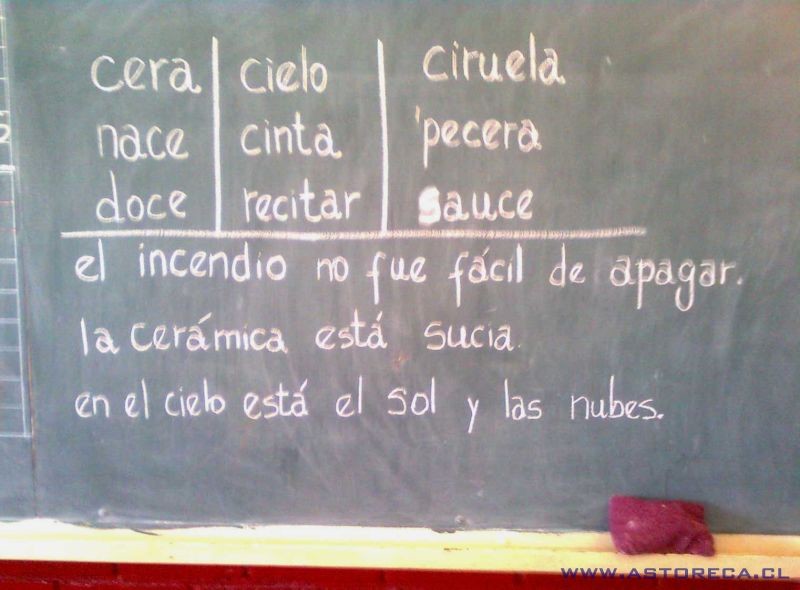 cera cielo ciruela
nace cinta pecera
doce recitar sauce
el incendio no fue fácil de apagar.
la cerámica está sucia.
en el cielo está el sol y las nubes.
WWW.ASTORECA.CL